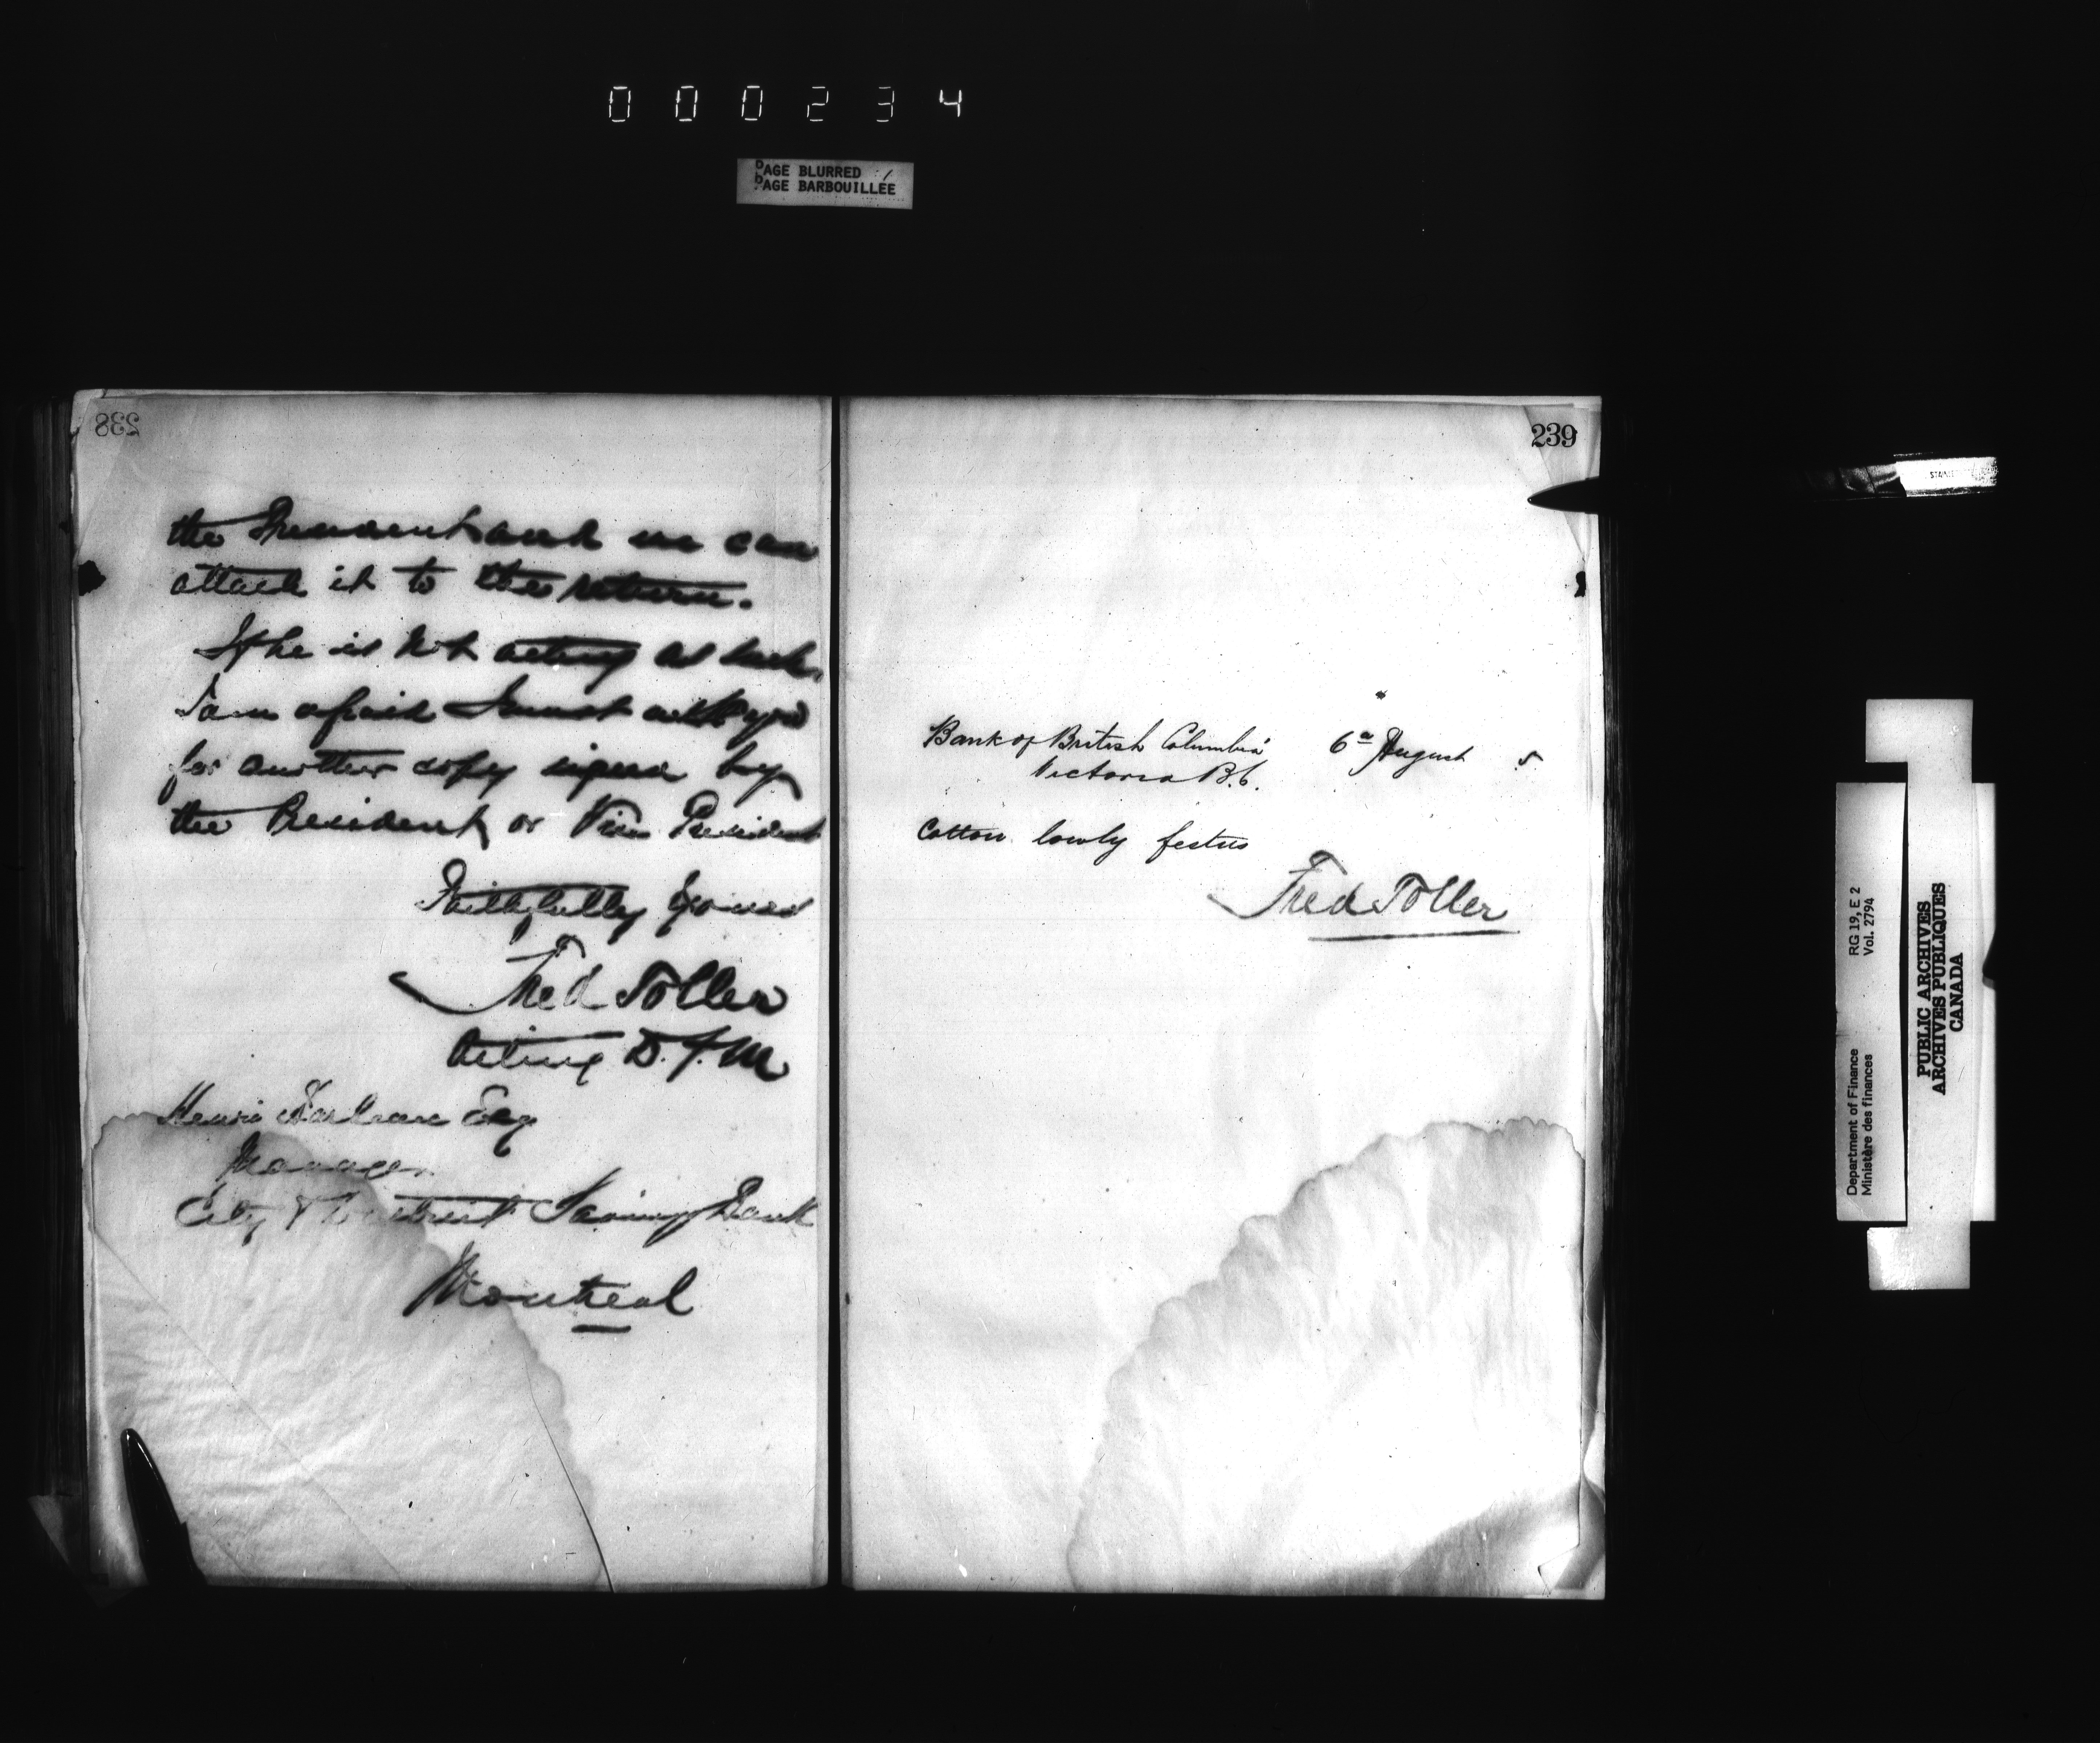 000234
PAGE BLURRED
PAGE BARBOUILLÉE
238
the President and we can
attach it to the return.
If he is not acting as such
I am afraid I must ask you
for another copy signed by
the President or Vice President
Faithfully Yours
Fred Toller
Acting D.F.M
Henri Barbeau Esq
Manager
City & District Savings Bank
Montreal
239
Bank of British Columbia 6a August 5
Victoria B.C.
Cotton lowly festus
Fred Toller
Department of Finance RG 19, E 2
Ministère des finances Vol. 2794
PUBLIC ARCHIVES
ARCHIVES PUBLIQUES
CANADA